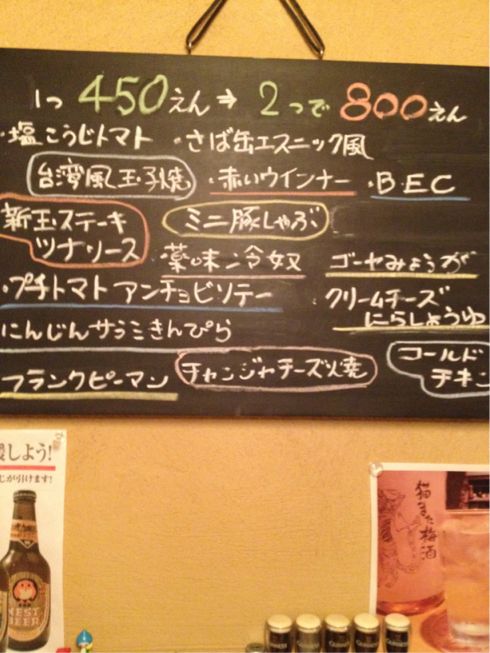 1つ 450えん⇒2つで800えん
・塩こうじトマト ・さば缶エスニック風
台湾風玉子焼 ・赤いウインナー ・B.E.C
新玉ステーキ
ツナソース
ミニ豚しゃぶ
・薬味冷奴 ゴーヤみょうが
・プチトマトアンチョビソテー
・クリームチーズ
にらしょうゆ
にんじんサラミきんぴら
フランクピーマン
チャンジャチーズ焼
コールド
チキン
しよう!
じが引けます!
NEST
BEER
猫また梅酒